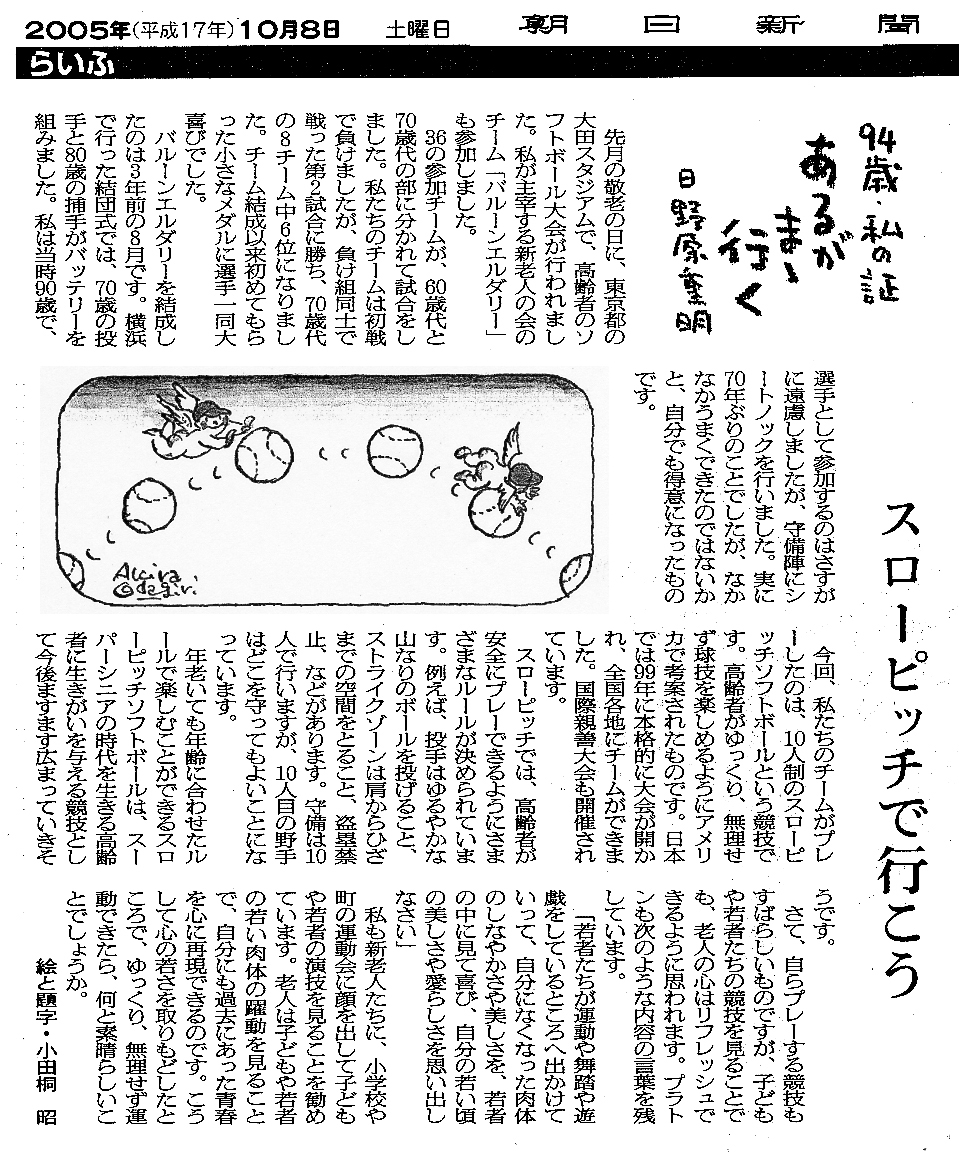 2005年(平成17年)10月8日 土曜日 朝日新聞
らいふ
94歳・私の証
あるが
まゝ
行く
日野原重明
スローピッチで行こう
先月の敬老の日に、東京都の
大田スタジアムで、高齢者のソ
フトボール大会が行われまし
た。私が主宰する新老人の会の
チーム「バルーンエルダリー」
も参加しました。
36の参加チームが、60歳代と
70歳代の部に分かれて試合をし
ました。私たちのチームは初戦
で負けましたが、負け組同士で
戦った第2試合に勝ち、70歳代
の8チーム中6位になりまし
た。チーム結成以来初めてもら
った小さなメダルに選手一同大
喜びでした。
バルーンエルダリーを結成し
たのは3年前の8月です。横浜
で行った結団式では、70歳の投
手と80歳の捕手がバッテリーを
組みました。私は当時90歳で、
選手として参加するのはさすが
に遠慮しましたが、守備陣にシ
ートノックを行いました。実に
70年ぶりのことでしたが、なか
なかうまくできたのではないか
と、自分でも得意になったもの
です。
今回、私たちのチームがプレ
ーしたのは、10人制のスローピ
ッチソフトボールという競技で
す。高齢者がゆっくり、無理せ
ず球技を楽しめるようにアメリ
カで考案されたものです。日本
では99年に本格的に大会が開か
れ、全国各地にチームができま
した。国際親善大会も開催され
ています。
スローピッチでは、高齢者が
安全にプレーできるようにさま
ざまなルールが決められていま
す。例えば、投手はゆるやかな
山なりのボールを投げること、
ストライクゾーンは肩からひざ
までの空間をとること、盗塁禁
止、などがあります。守備は10
人で行いますが、10人目の野手
はどこを守ってもよいことにな
っています。
年老いても年齢に合わせたル
ールで楽しむことができるスロ
ーピッチソフトボールは、スー
パーシニアの時代を生きる高齢
者に生きがいを与える競技とし
て今後ますます広まっていきそ
うです。
さて、自らプレーする競技も
すばらしいものですが、子ども
や若者たちの競技を見ることで
も、老人の心はリフレッシュで
きるように思われます。プラト
ンも次のような内容の言葉を残
しています。
「若者たちが運動や舞踏や遊
戯をしているところへ出かけて
いって、自分になくなった肉体
のしなやかさや美しさを、若者
の中に見て喜び、自分の若い頃
の美しさや愛らしさを思い出し
なさい」
私も新老人たちに、小学校や
町の運動会に顔を出して子ども
や若者の演技を見ることを勧め
ています。老人は子どもや若者
の若い肉体の躍動を見ること
で、自分にも過去にあった青春
を心に再現できるのです。こう
して心の若さを取りもどしたと
ころで、ゆっくり、無理せず運
動できたら、何と素晴らしいこ
とでしょうか。
絵と題字・小田桐 昭
Akira
Odagiri.